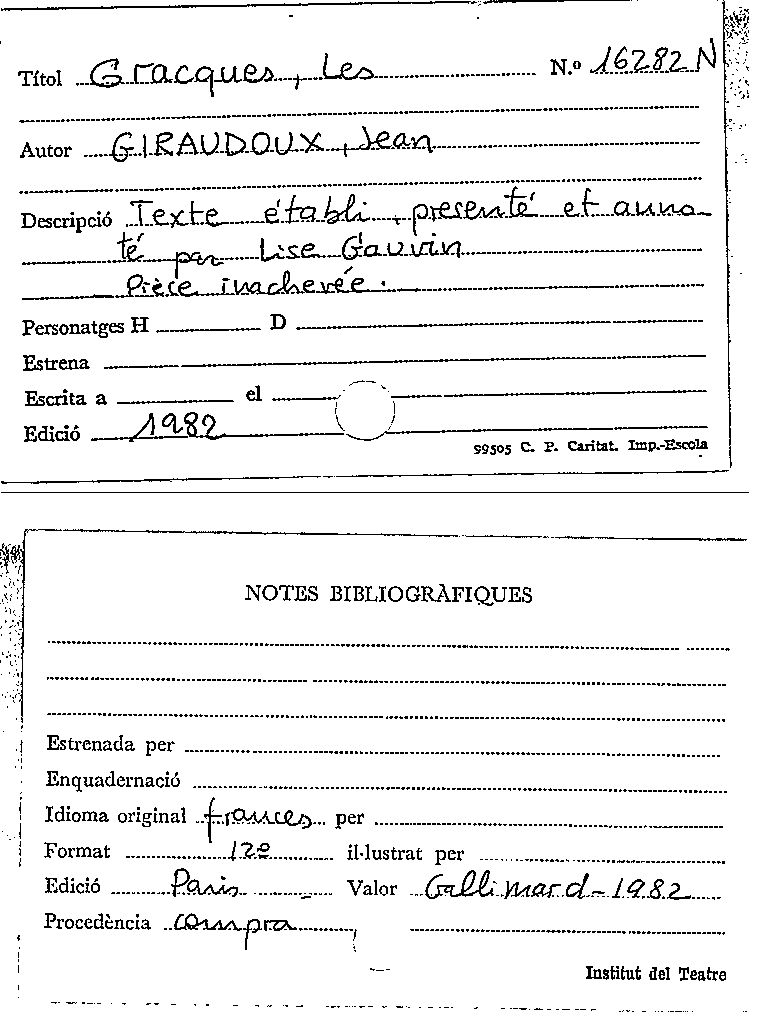 Títol Gracques, Les N.º 16282 N
Autor GIRAUDOUX, Jean
Descripció Texte établi, presenté et anno-
té par Lise Gauvin
Pièce inachevée.
Personatges H D
Estrena
Escrita a el
Edició 1982
99505 C. P. Caritat. Imp.-Escola
NOTES BIBLIOGRÀFIQUES
Estrenada per
Enquadernació
Idioma original frances per
Format 12º il·lustrat per
Edició Paris Valor Gallimard-1982
Procedència compra
Institut del Teatre